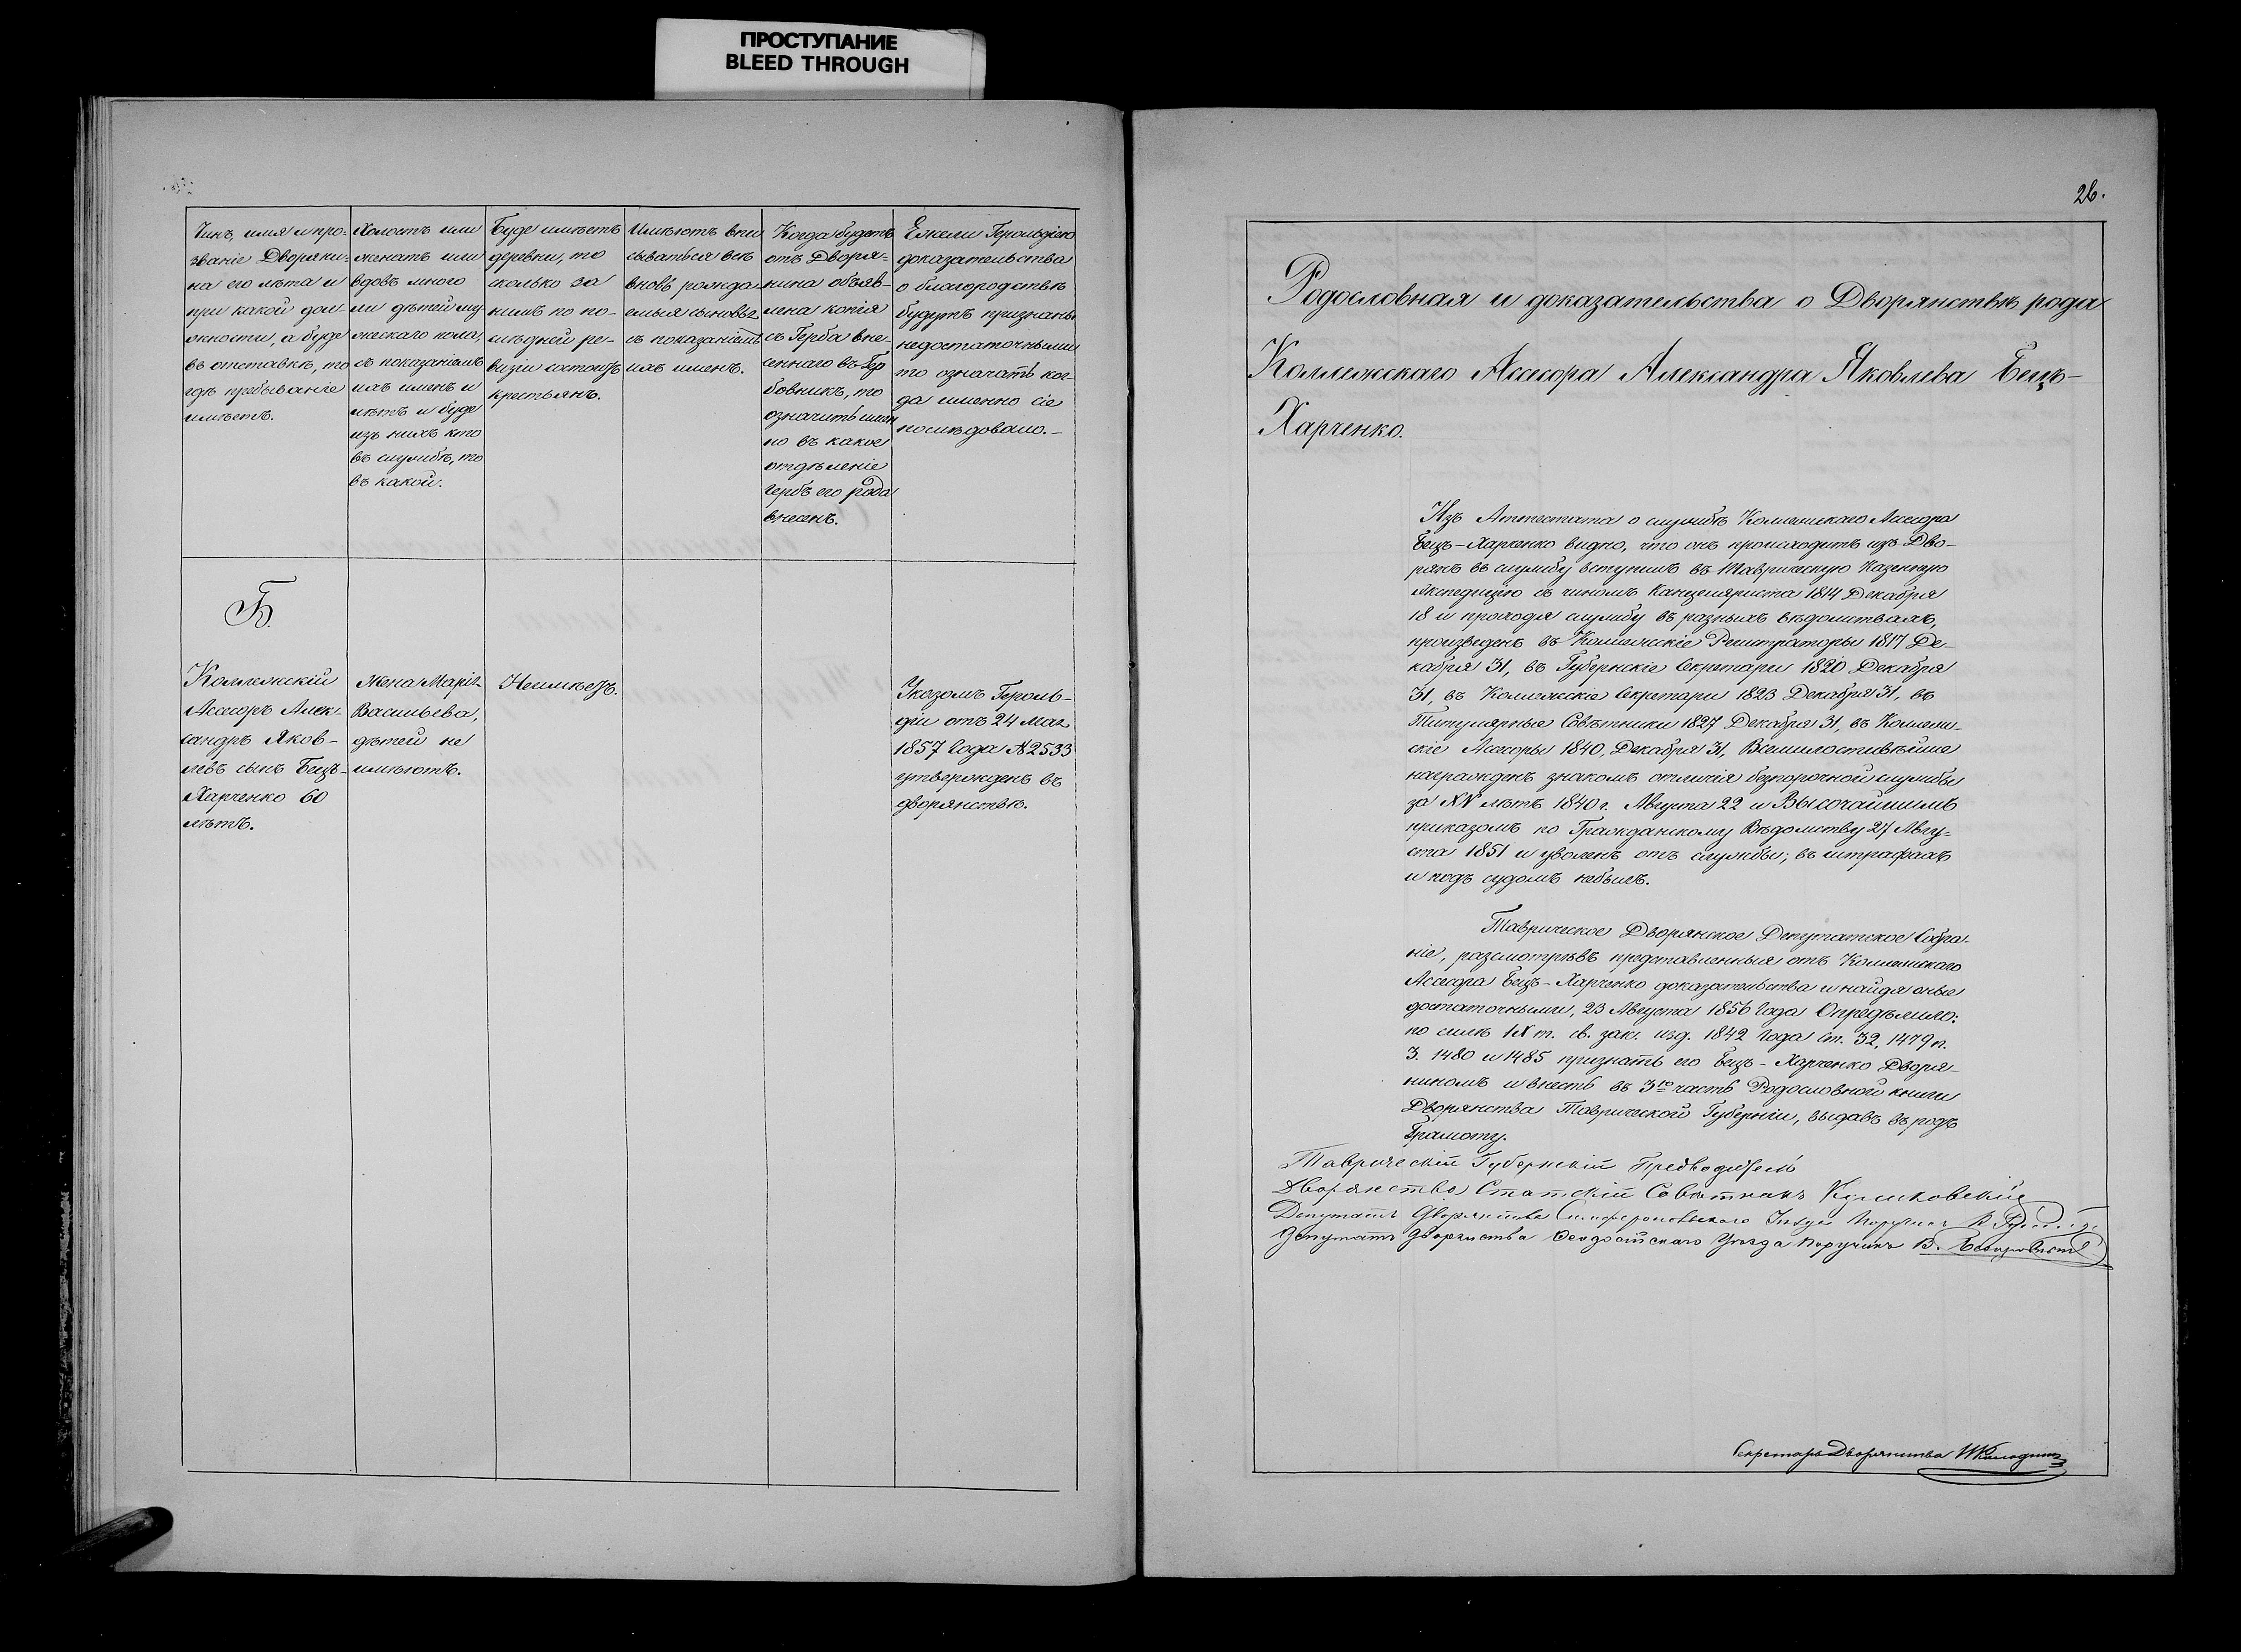 ПРОСТУПАНИЕ
BLEED THROUGH
Чинъ, имя и про-
званіе Дворяни-
на его лѣта и
при какой дол-
жности, а буде
въ отставкѣ, то
гдѣ пребываніе
имѣетъ.
Холостъ или
женатъ или
вдовъ много
ли дѣтей му-
жескаго пола,
съ показаніемъ
ихъ именъ и
лѣтъ и буде
изъ нихъ кто
въ службѣ, то
въ какой.
Буде имѣетъ
деревни, то
сколько за
нимъ по по-
слѣдней ре-
визіи состоитъ
крестьянъ.
Имѣютъ впи
сываться всѣ
вновь рожда
емыя сыновья
съ показаніемъ
ихъ именъ.
Когда будетъ
отъ Дворя-
нина объяв-
лена копія
съ Герба вне-
сеннаго въ Гер
бовникъ, то
означить имен
но въ какое
отдѣленіе
гербъ его рода
внесенъ.
Ежели Герольдіею
доказательства
о благородствѣ
будутъ признаны
недостаточными
то означать ког-
да именно сіе
послѣдовало.-
Б.
Коллежскій
Ассесоръ Алек-
сандръ Яков-
левъ сынъ Бецъ-
Харченко 60
лѣтъ.
Жена Марія
Васильева,
дѣтей не
имѣютъ.
Неимѣетъ.
Указомъ Героль-
діи отъ 24 Мая
1857 Года № 2533
утвержденъ въ
дворянствѣ.
26.
Родословная и доказательства о Дворянствѣ рода
Коллежскаго Ассесора Александра Яковлева Бецъ-
Харченко.
Изъ Аттестата о службѣ Коллежскаго Ассесора
Бецъ-Харченко видно, что онъ происходитъ изъ Дво-
рянъ въ службу вступилъ въ Таврическую Казенную
Экспедицію съ чиномъ Канцеляриста 1814 Декабря
18 и проходя службу въ разныхъ вѣдомствахъ,
произведенъ въ Коллежскіе Регистраторы 1817 Де-
кабря 31, въ Губернскіе Секретари 1820 Декабря
31, въ Коллежскіе Секретари 1823 Декабря 31, въ
Титулярные Совѣтники 1827 Декабря 31, въ Коллеж-
скіе Ассесоры 1840, Декабря 31, Всемилостивѣйше
награжденъ знакомъ отличія безпорочной службы
за XV лѣтъ 1840 г. Августа 22 и Высочайшимъ
приказомъ по Гражданскому Вѣдомству 27 Авгу-
ста 1851 и уволенъ отъ службы; въ штрафахъ
и подъ судомъ небылъ.
Таврическое Дворянское Депутатское Собра-
ніе, разсмотрѣвъ представленныя отъ Коллежскаго
Ассесора Бецъ-Харченко доказательства и найдя оные
достаточными, 23 Августа 1856 Года Опредѣлило:
по силѣ IX т. св. зак. изд. 1842 Года ст. 32, 1479 п.
3. 1480 и 1485 признать его Бецъ-Харченко Дворя-
ниномъ и внесть въ 3ю часть Родословной книги
Дворянства Таврической Губерніи, выдавъ въ родъ
Грамоту.
Таврическій Губернскій Предводитель
Дворянства Статскій Совѣтникъ
Депутатъ Дворянства Симферопольскаго Уѣзда Поручикъ
Депутатъ Дворянства Ѳеодосійскаго Уѣзда Поручикъ В.
Секретарь Дворянства